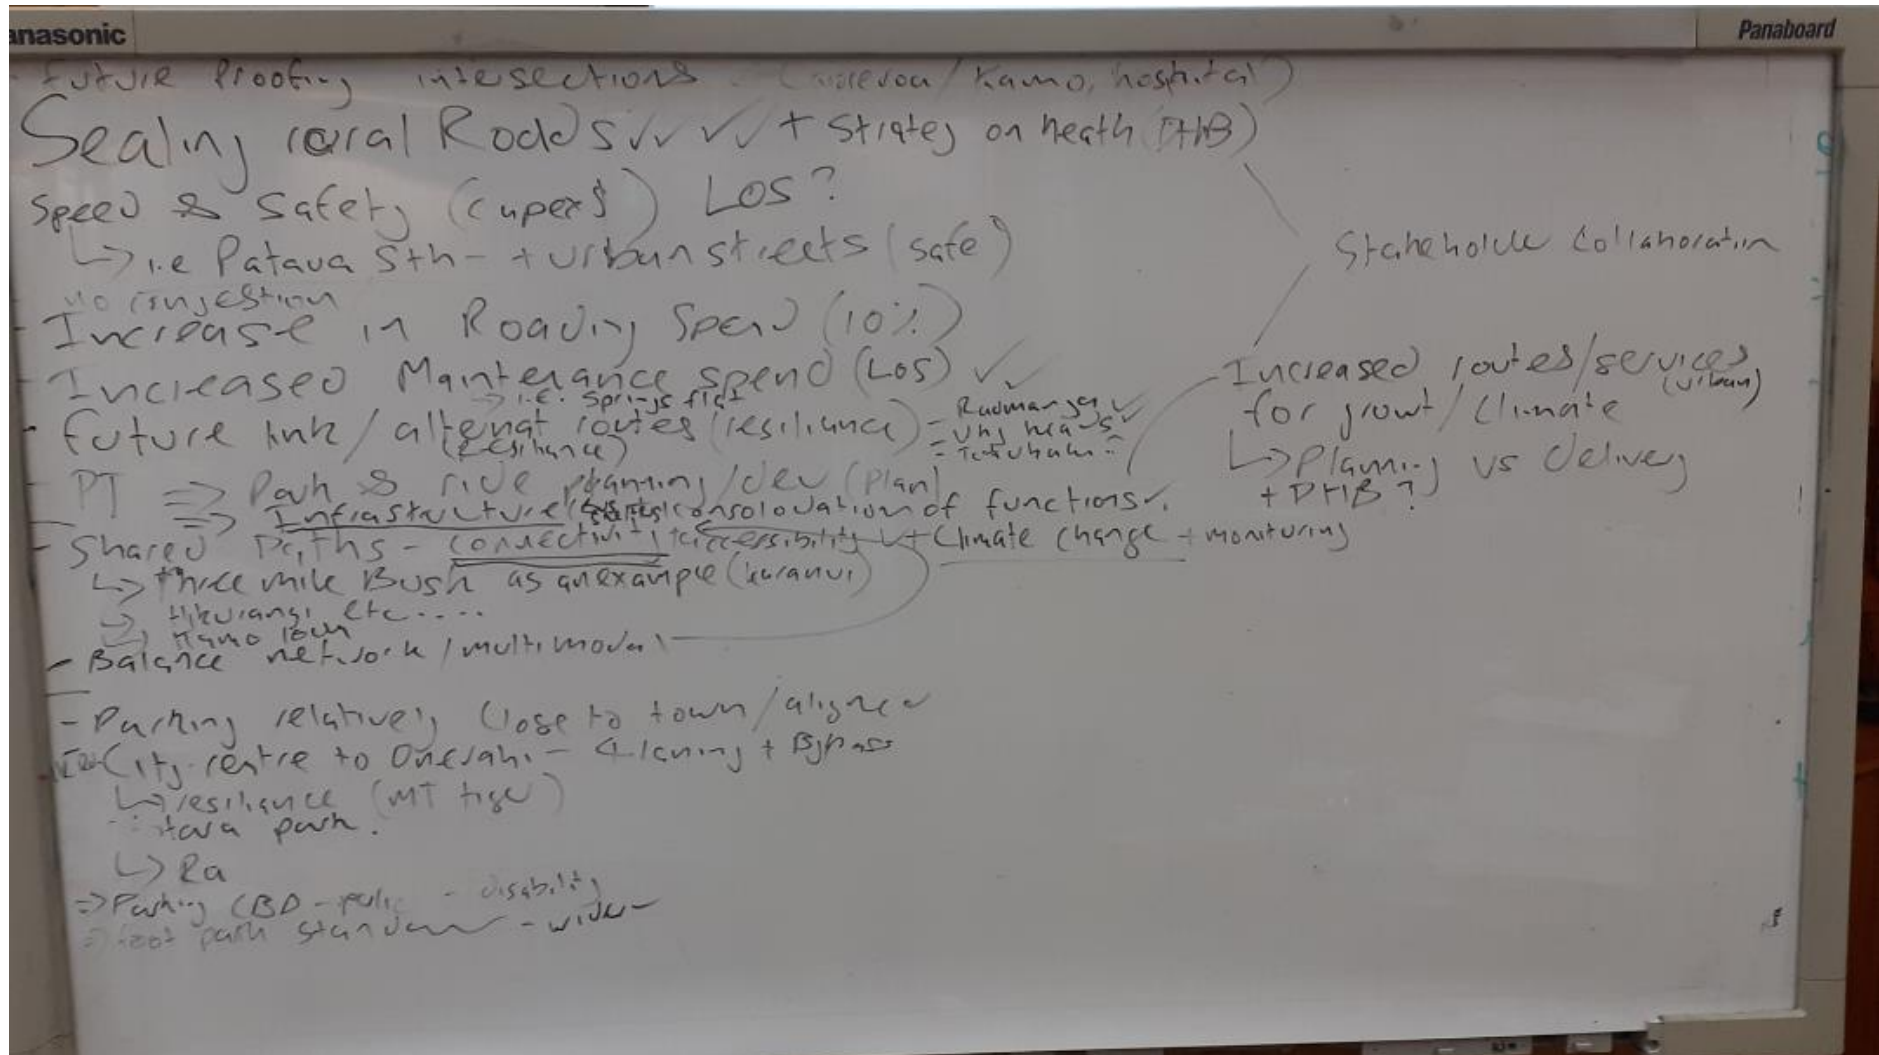 Panasonic
Panaboard
- Future Proofing intersections (/Kamo, hospital)
Sealing rural Roads ✓✓ ✓✓ + Strategy on heath (DHB)
Speed & Safety (capex $) LOS?
↳ i.e Pataua Sth - + urban streets (safe)
No congestion
- Increase in Roading Spend (10%)
- Increased Maintenance spend (LOS) ✓✓
→ i.e. Springs flat
- Future link/alternat routes (resiliance)
(Resiliance)
- Ruamanga ✓
- Whg heads ✓
- PT ⇒ Park & ride planning/dev (Plan)
⇒ Infrastructure consolodation of functions ✓
- Shared Paths - connectivity + accessibility + Climate change + monitoring
↳ Three mile Bush as an example (kuranui)
→ Hikurangi etc.....
→ Kamo town
- Balance network/multimodal
- Parking relatively close to town/aligned
City centre to Onerahi - 4 laning + Bypass
↳ resiliance (MT tiger)
tara park.
↳ Ra
⇒ Parking CBD - - disability
⇒ foot path standard - wider
Stakeholde Collaboration
- Increased routes/services
(urban)
for growt/Climate
↳ Planning vs delivery
+ DHB?